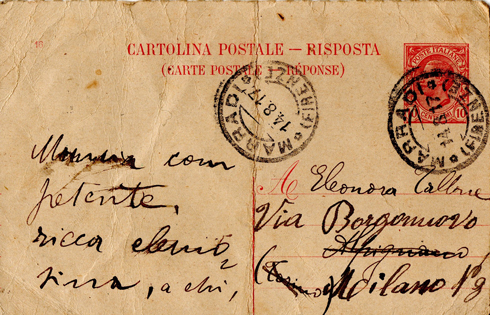 CARTOLINA POSTALE — RISPOSTA
(CARTE POSTALE — RÉPONSE)
POSTE ITALIANE
CENTESIMI 10
MARRADI (FIRENZE)
14.8.17
MARRADI (FIRENZE)
14.8.17
com
petente,
ricca
sima, a chi,
A Eleonora
Via Borgonuovo
(Torino) Milano